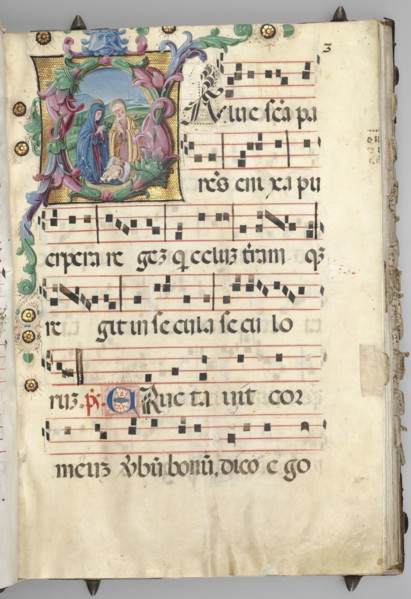 3
SAlue scã pa
rẽs eni xa pu
erpera re gez q celuz tr̃am qꝫ
re git in se cula se cu lo
ruz. p̃s. ERuc ta uit cor
meuz v̄bũ bonũ, dico e go